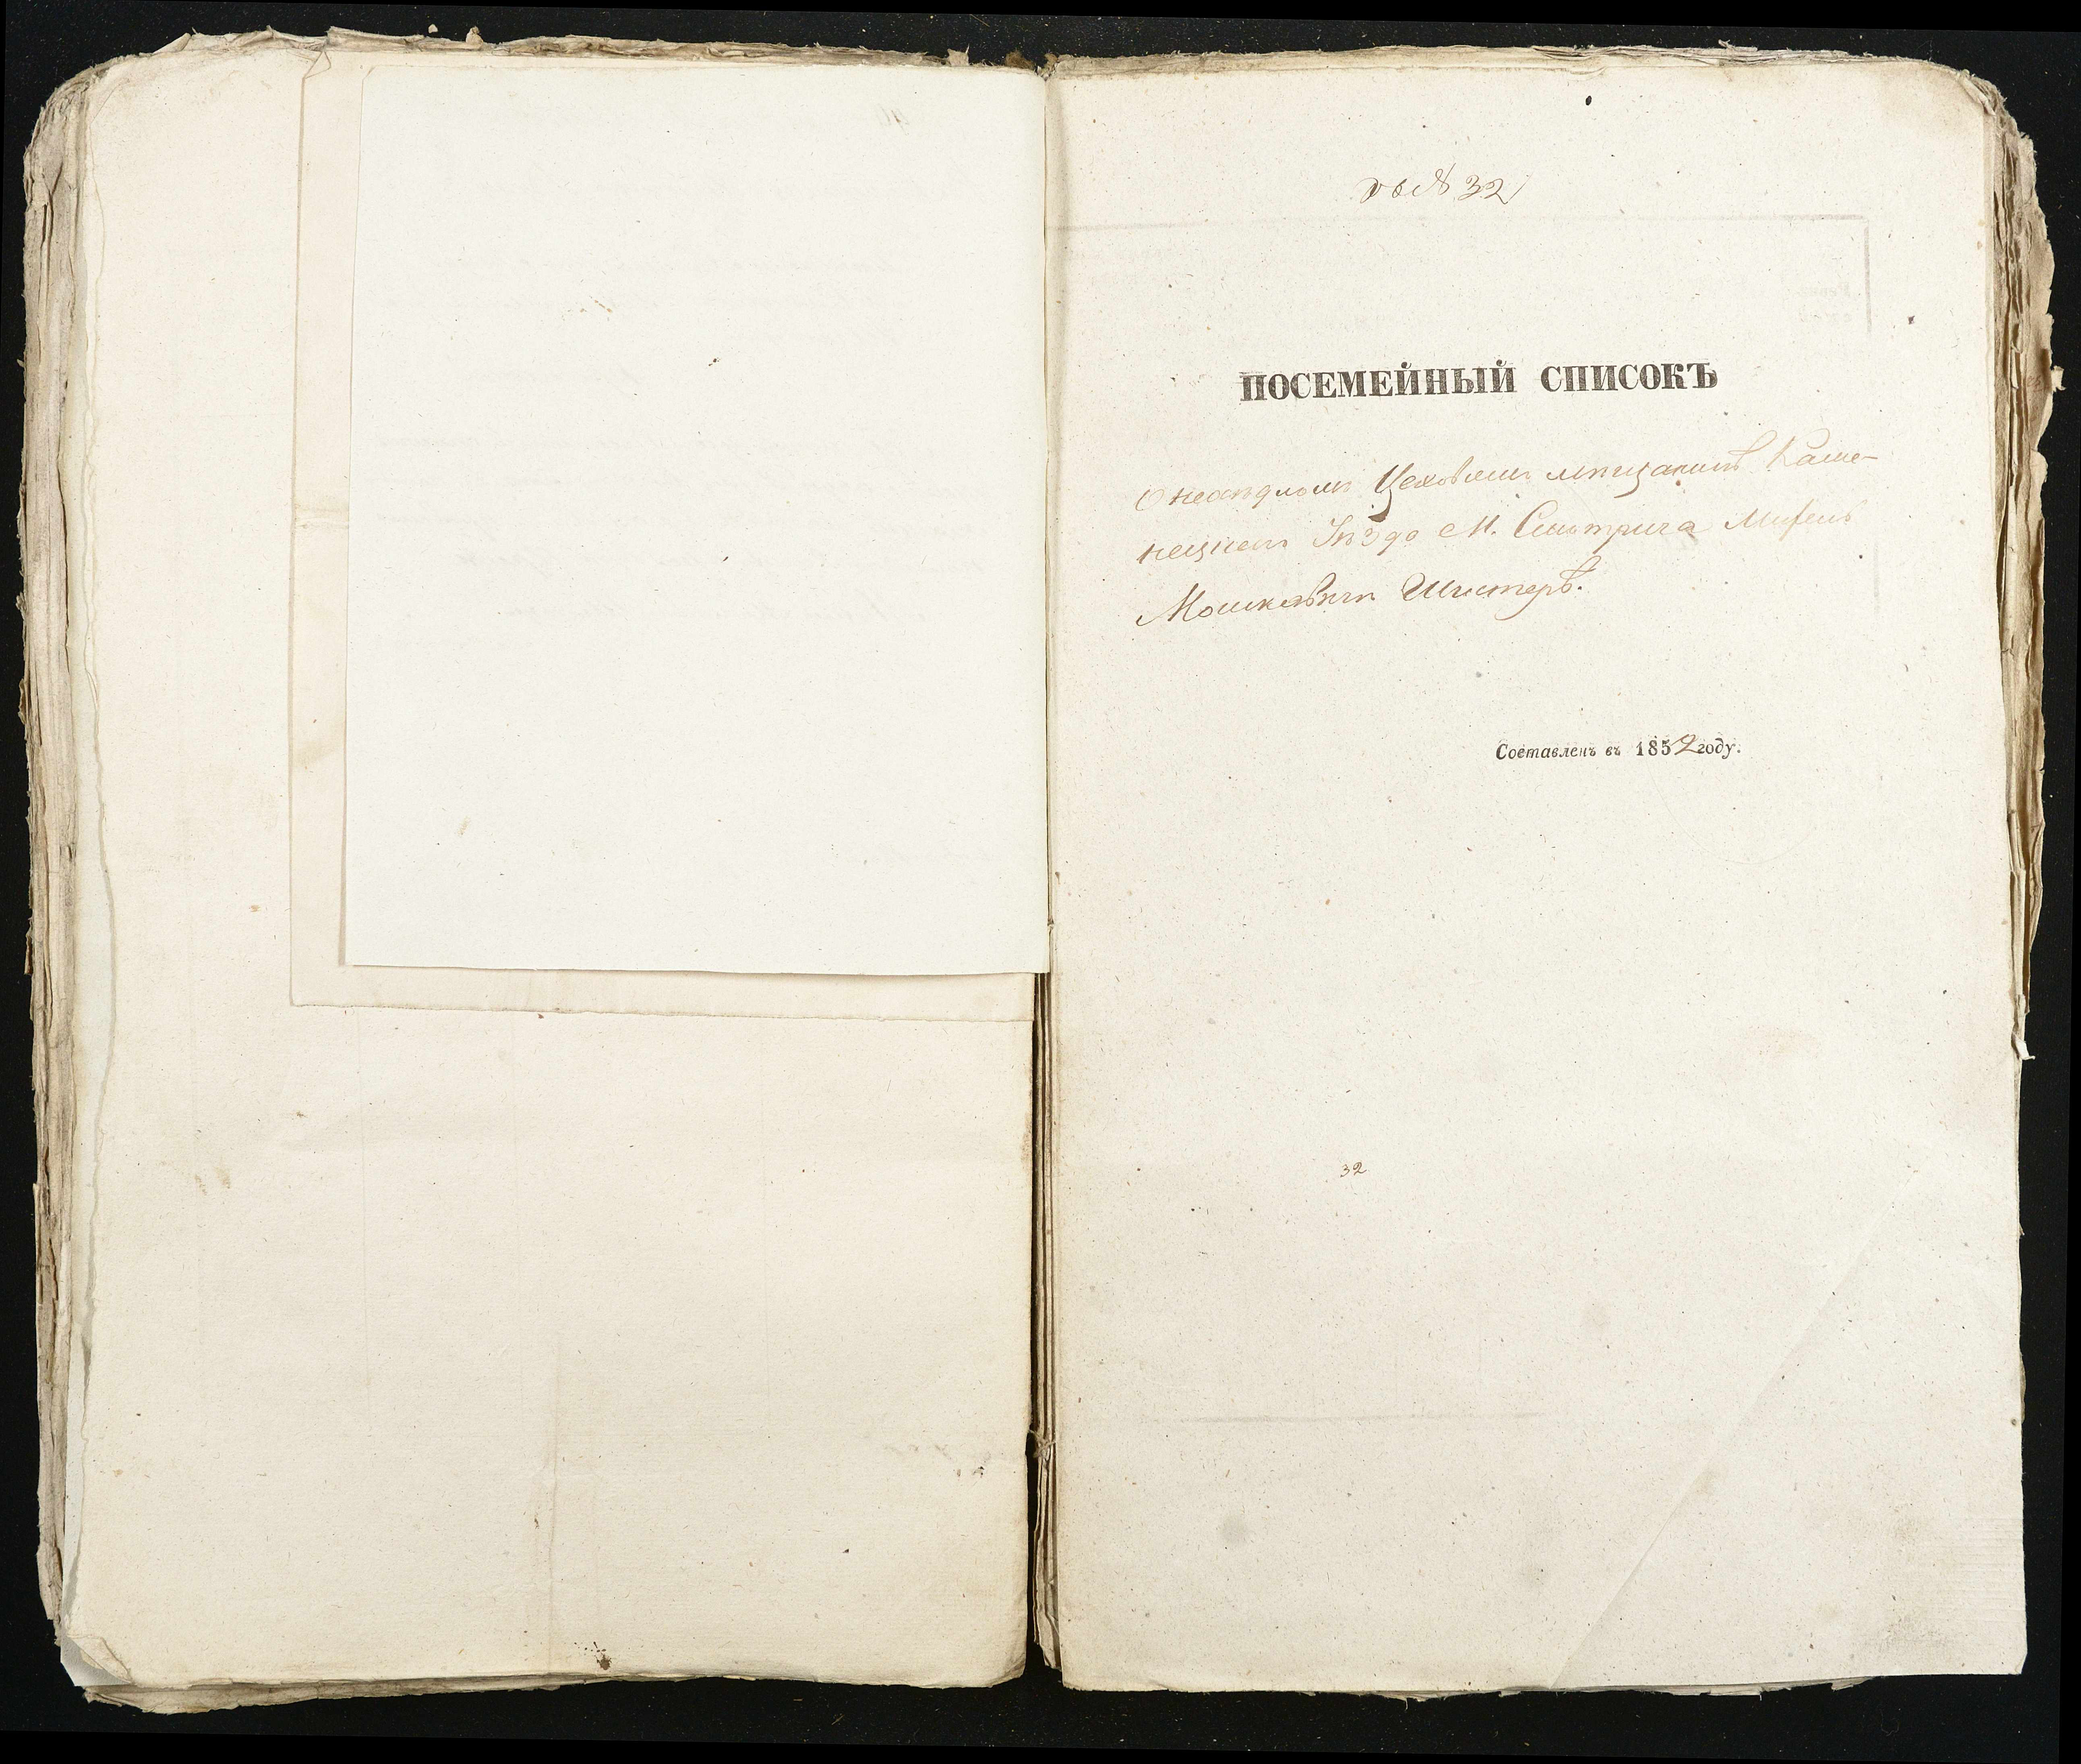 № 32
ПОСЕМЕЙНЫЙ СПИСОКЪ
О неосѣдломъ Цеховомъ мѣщанинѣ Каме-
нецкаго Уѣзда М. Смотрича
Мошковичѣ Шистерѣ.
Составленъ въ 1852 году.
32